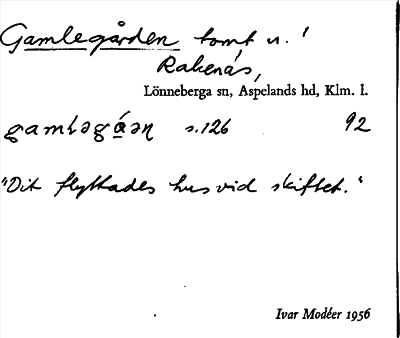 Gamlegården tomt n. '
Rakenäs,
Lönneberga sn, Aspelands hd, Klm. l.
gamləgá̱əɳ s. 126 92
"Dit flyttades hus vid skiftet."
Ivar Modéer 1956